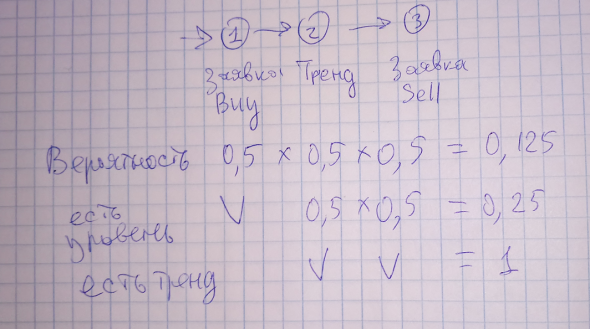 → 1 → 2 → 3
Заявка Тренд Заявка
Buy Sell
Вероятность 0,5 × 0,5 × 0,5 = 0,125
есть V 0,5 × 0,5 = 0,25
уровень
есть тренд V V = 1